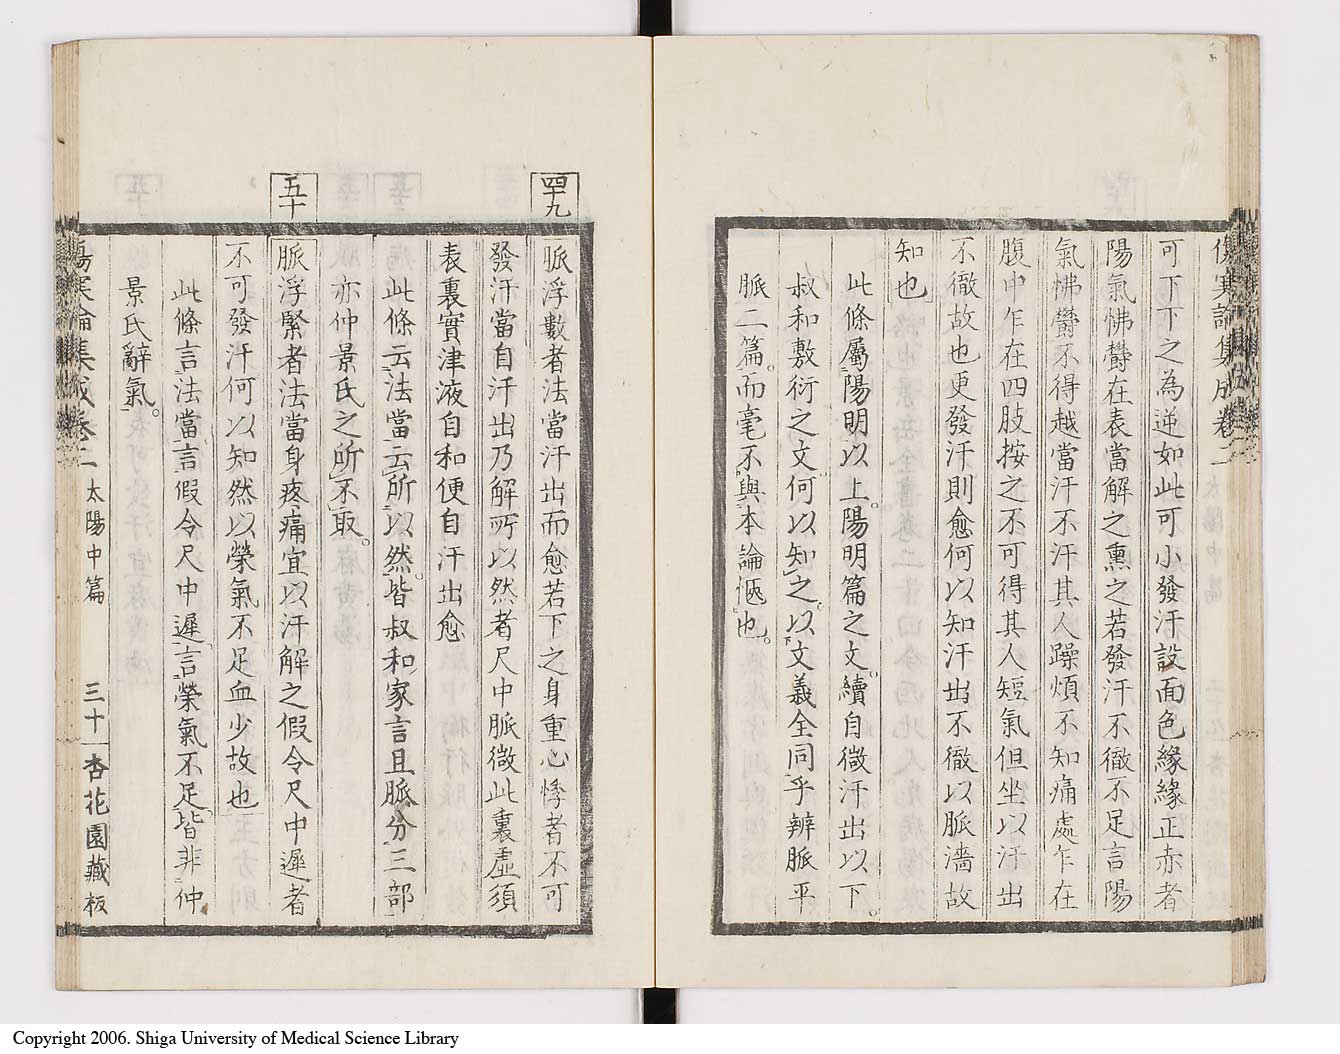 傷寒論集成卷二
可下下之為逆如此可小發汗設面色緣緣正赤者
陽氣怫鬱在表當解之熏之若發汗不徹不足言陽
氣怫鬱不得越當汗不汗其人躁煩不知痛處乍在
腹中乍在四肢按之不可得其人短氣但坐以汗出
不徹故也更發汗則愈何以知汗出不徹以脈濇故
知也
此條屬陽明以上。陽明篇之文。續自微汗出以下。
叔和敷衍之文何以知之。以文義全同乎辨脈平
脈二篇。而毫不與本論愜也。
四十九
脈浮數者法當汗出而愈若下之身重心悸者不可
發汗當自汗出乃解所以然者尺中脈微此裏虛須
表裏實津液自和便自汗出愈
此條云法當云所以然。皆叔和家言且脈分三部
亦仲景氏之所不取。
五十
脈浮緊者法當身疼痛宜以汗解之假令尺中遲者
不可發汗何以知然以榮氣不足血少故也
此條言法當言假令尺中遲言榮氣不足皆非仲
景氏辭氣。
傷寒論集成卷二 太陽中篇 三十一 杏花園藏板
Copyright 2006. Shiga University of Medical Science Library